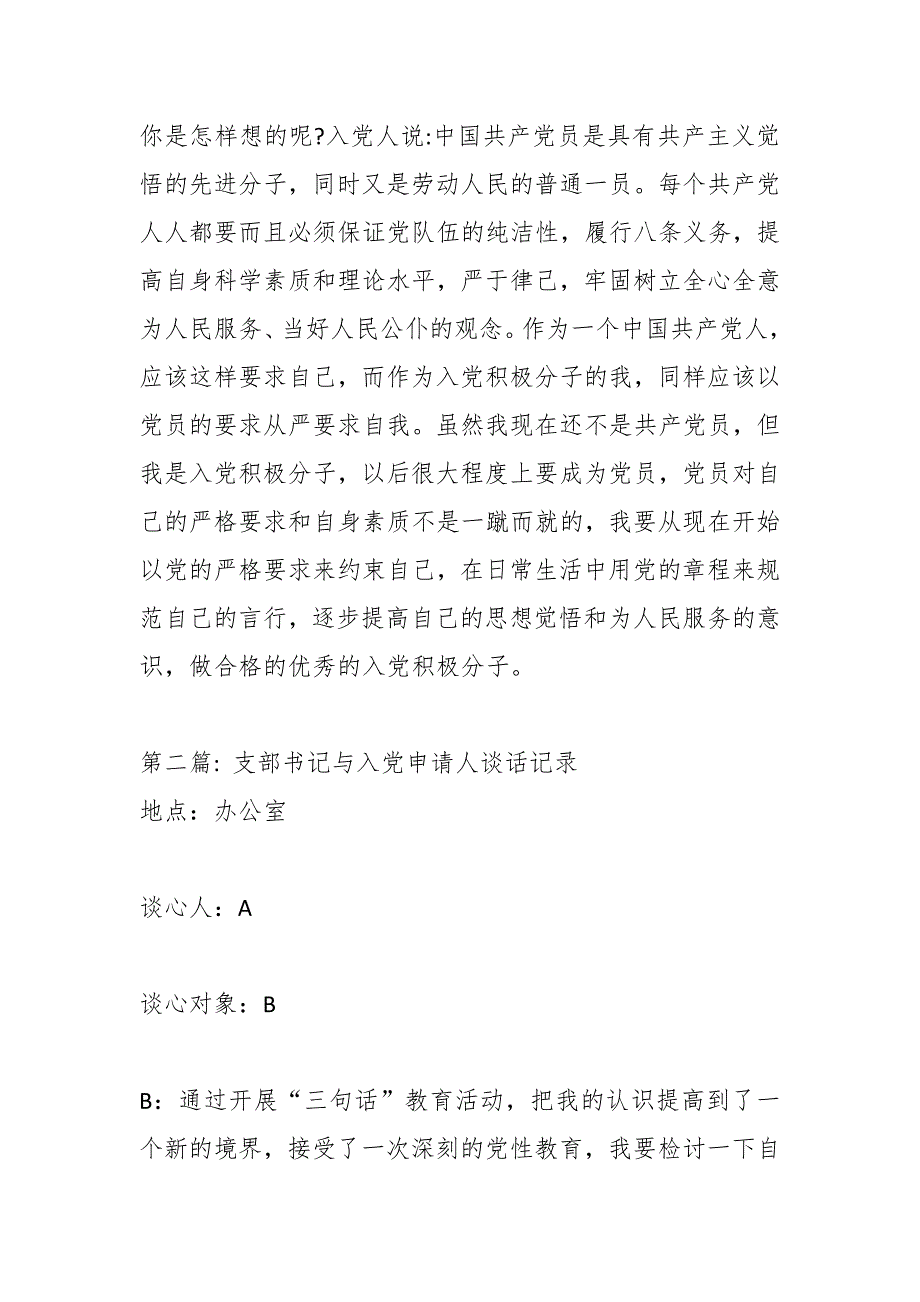 你是怎样想的呢?入党人说:中国共产党员是具有共产主义觉
悟的先进分子，同时又是劳动人民的普通一员。每个共产党
人人都要而且必须保证党队伍的纯洁性，履行八条义务，提
高自身科学素质和理论水平，严于律己，牢固树立全心全意
为人民服务、当好人民公仆的观念。作为一个中国共产党人，
应该这样要求自己，而作为入党积极分子的我，同样应该以
党员的要求从严要求自我。虽然我现在还不是共产党员，但
我是入党积极分子，以后很大程度上要成为党员，党员对自
己的严格要求和自身素质不是一蹴而就的，我要从现在开始
以党的严格要求来约束自己，在日常生活中用党的章程来规
范自己的言行，逐步提高自己的思想觉悟和为人民服务的意
识，做合格的优秀的入党积极分子。
第二篇: 支部书记与入党申请人谈话记录
地点：办公室
谈心人：A
谈心对象：B
B：通过开展“三句话”教育活动，把我的认识提高到了一
个新的境界，接受了一次深刻的党性教育，我要检讨一下自